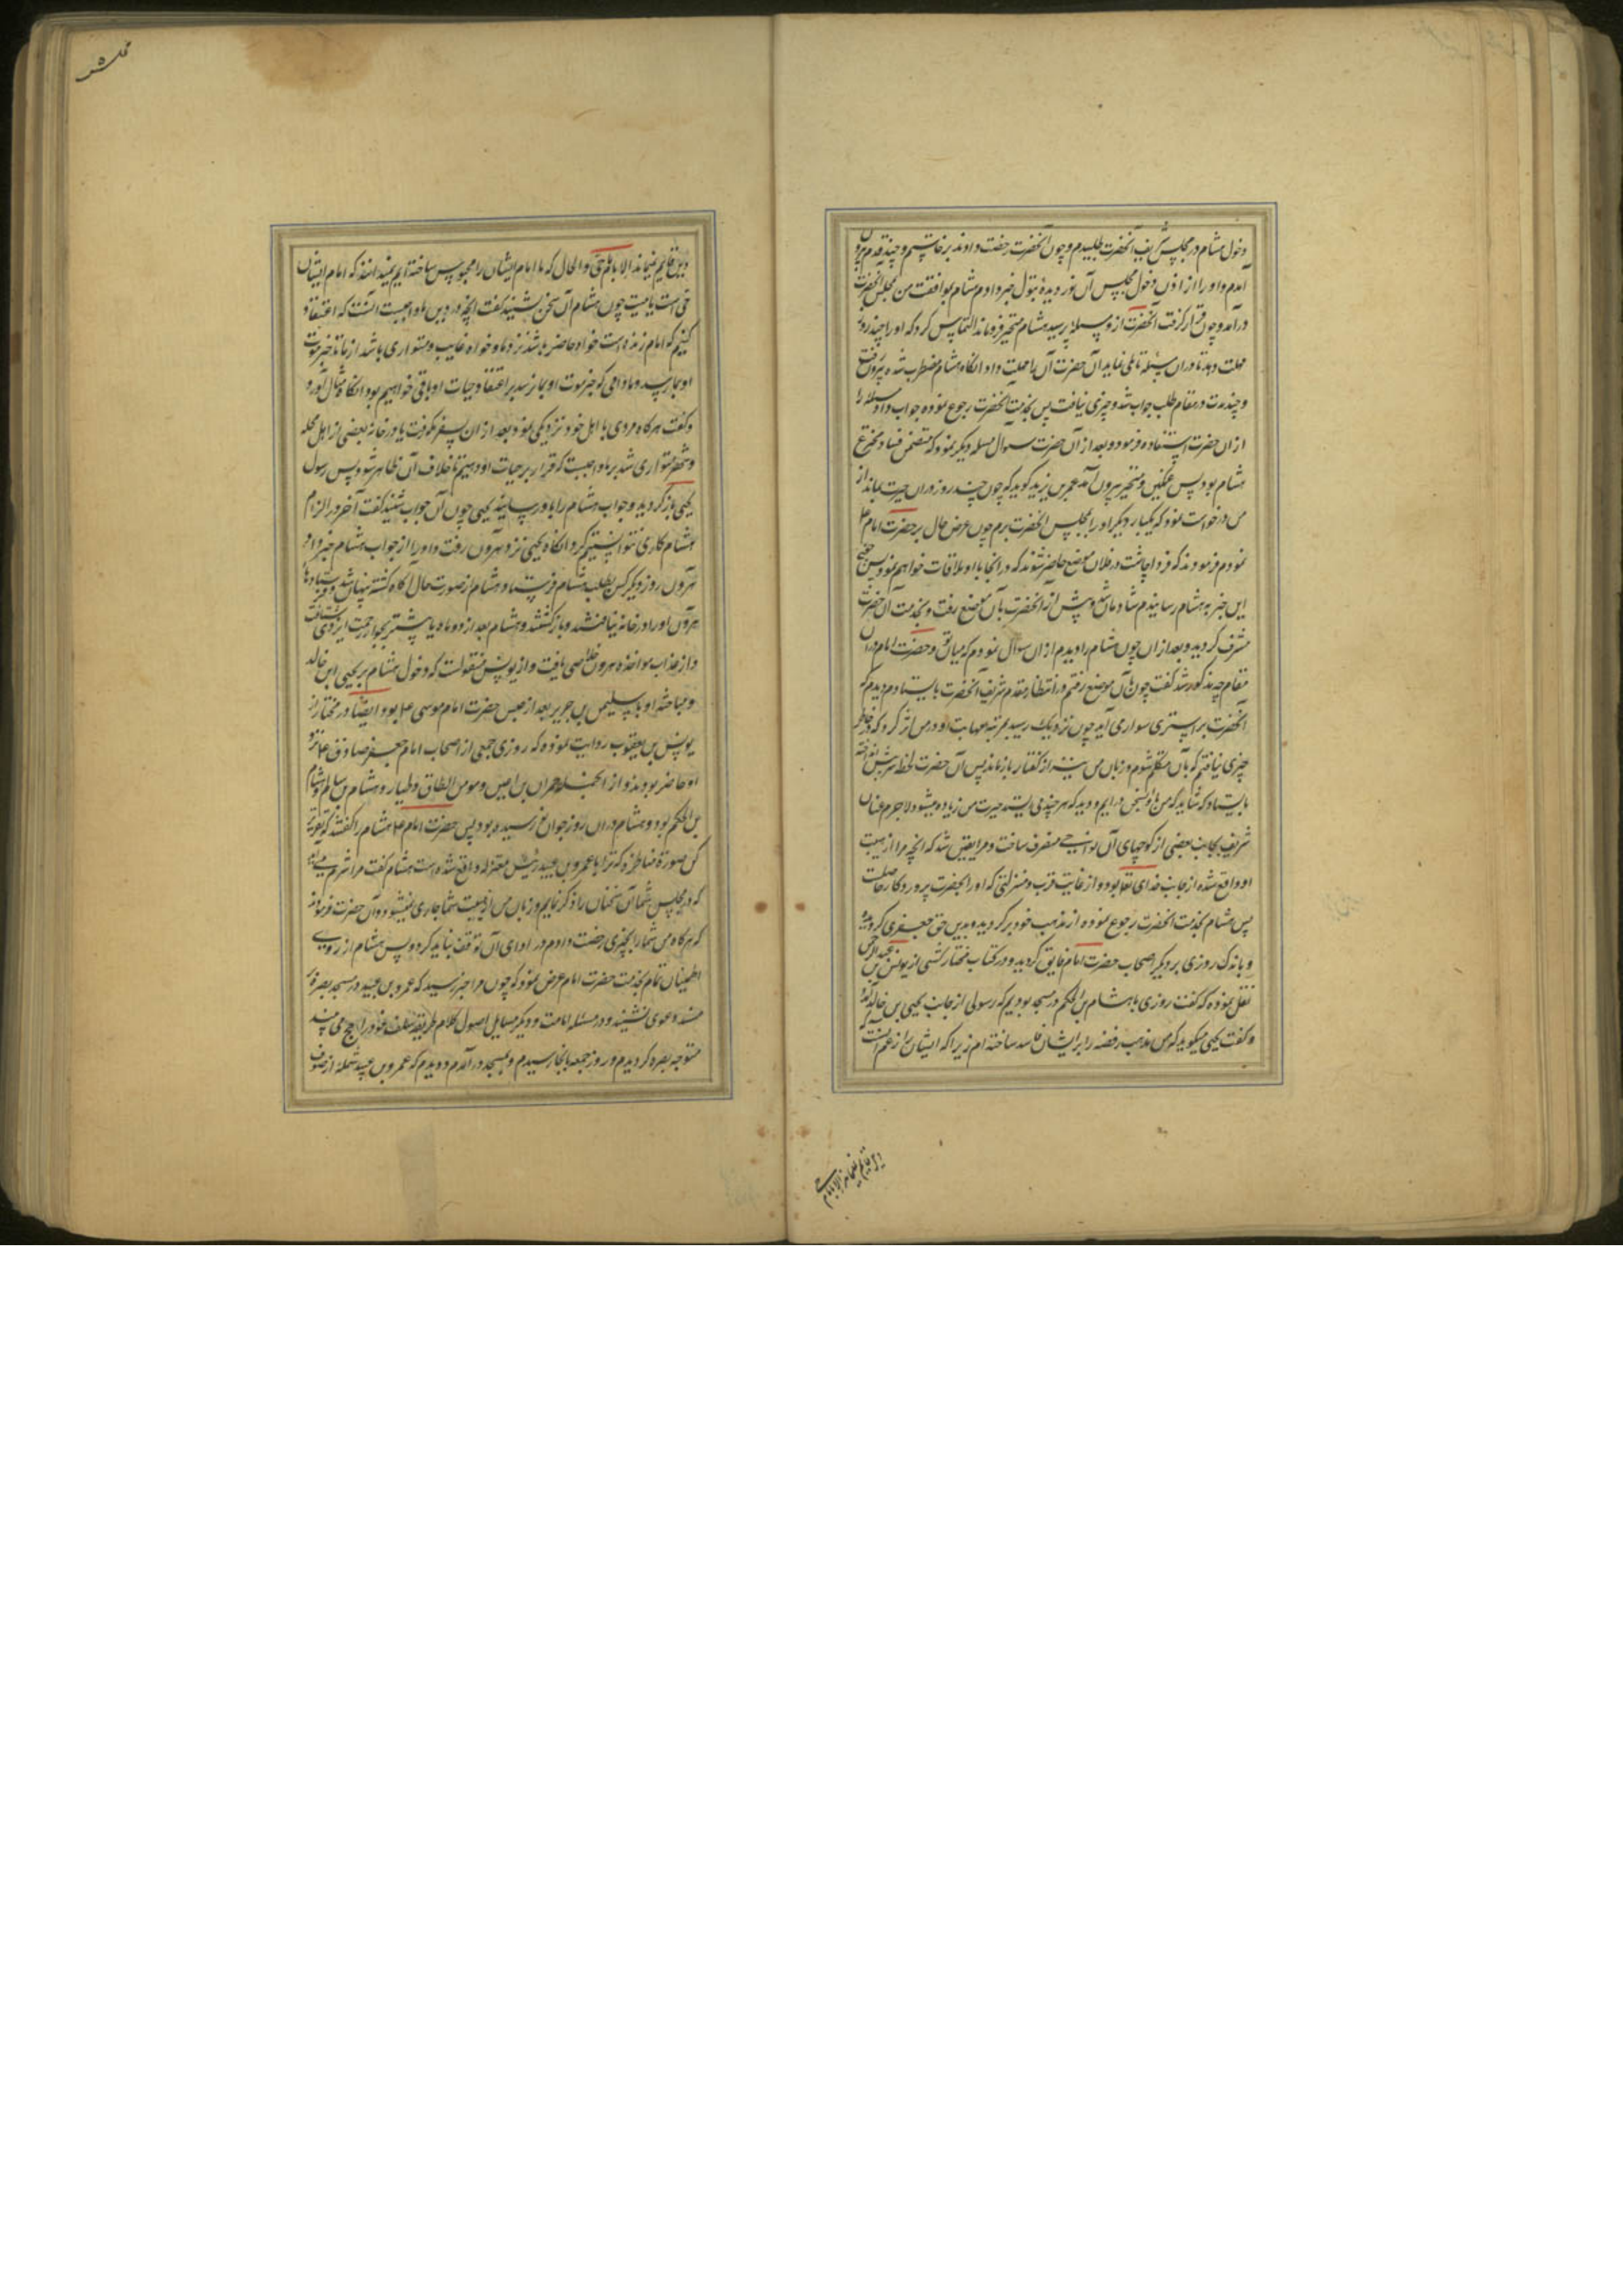 دخول هشام در مجلس شریف آنحضرت طلبیدم و چون آنحضرت رخصت دادند برخاستیم و چند قدم بیرون
آمدم و او را از اذن دخول مجلس آن نور دیدهٔ بتول خبر دادم هشام بموافقت من بمجلس آنحضرت
درآمد و چون قرار گرفت آنحضرت ازو مسئله پرسید هشام متحیر فروماند التماس کرد که او را چند روز
مهلت دهد تا در آن مسئله تاملی نماید آن حضرت آن را مهلت داد آنگاه هشام مضطرب شده بیرون رفت
و چند مدت در مقام طلب جواب شد و چیزی نیافت پس بخدمت آنحضرت رجوع نموده جواب داد مسئله را
از آن حضرت استفاده فرمود و بعد از آن حضرت سوال مسله دیگر نمود که متضمن فساد مخترع
هشام بود پس غمگین و متحیر بیرون آمد عمر بن یزید گوید که چون چند روز در آن حیرت بماند از
من درخواست نمود که یکبار دیگر او را بمجلس آنحضرت برم چون عرض حال بر حضرت امام ع
نمودم فرمودند که فردا چاشت در فلان موضع حاضر شوند که در آنجا با او ملاقات خواهم نمود پس
این خبر به هشام رسانیدم شادمان شد و پیش از آنحضرت بآن موضع رفت و بخدمت آن حضرت
مشرف گردید و بعد از آن چون هشام را دیدم از آن سوال نمودم که میان تو و حضرت امام در آن
مقام چه مذکور شد گفت چون بآن موضع رفتم در انتظار مقدم شریف آنحضرت بایستادم دیدم که
آنحضرت بر استری سوار می آید چون نزدیک رسید بمرتبه مهابت او در من اثر کرد که در خاطر
چیزی نیافتم که بآن متکلم شوم و زبان من نیز از گفتار باز ماند پس آن حضرت لحظه سر پیش انداخته
بایستاد که شاید که من با او بسخن درایم و دید که هر چند می ایستد حیرت من زیاده میشود لاجرم عنان
شریف بجانب بعضی از کوچهای آن نواحی منصرف ساخت و مرا یقین شد که انچه مرا از هیبت
او واقع شده از جانب خدای تعالی بود و از غایت قرب و منزلتی که او را بحضرت پروردگار حاصلست
پس هشام بخدمت آنحضرت رجوع نموده از مذهب خود برگردید و بدین حق جعفری گروید
و باندک روزی بر دیگر اصحاب حضرت امام فایق گردید و در کتاب مختار کشی از یونس بن عبد الرحمن
نقل نموده که گفت روزی با هشام بن الحکم در مسجد بودیم که رسولی از جانب یحیی بن خالد آمد
و گفت یحیی میگوید که من مذهب رفضه را بر ایشان فاسد ساخته ام زیرا که ایشان را زعم آنست که
دین قایم نمیماند الا بامام
دین قایم نمیماند الا بامام حی و الحال که ما امام ایشان را محبوس ساخته ایم نمیدانند که امام ایشان
حی است یا میت چون هشام آن سخن بشنید گفت انچه در دین ما واجبست آنست که اعتقاد
کنیم که امام زنده است خواه حاضر باشد نزد ما و خواه غایب و متواری باشد از ما تا خبر موت
او بما رسد و مادامی که خبر موت او بما نرسد بر اعتقاد حیات او باقی خواهیم بود آنگاه مثال آورد
و گفت هرگاه مردی با اهل خود نزدیکی نمود و بعد از آن بسفر مکه رفت یا در خانهٔ بعضی از اهل محله
و شهر متواری شد بر ما واجبست که قرار بر حیات او دهیم تا خلاف آن ظاهر شود پس رسول
یحیی باز گردید و جواب هشام را باو رسانید یحیی چون آن جواب شنید گفت آخر در الزام
هشام کاری نتوانستیم کرد آنگاه یحیی نزد هرون رفت و او را از جواب هشام خبر داد
هرون روز دیگر کس بطلب هشام فرستاد و هشام از صورت حال آگاه گشته پنهان شد و فرستادها
هرون او را در خانه نیافتند و باز گشتند و هشام بعد از دو ماه یا بیشتر بجوار رحمت ایزدی شتافت
و از عذاب مواخذه هرون خلاصی یافت و از یونس منقولست که دخول هشام بر یحیی ابن خالد
و مباحثه او با سلیمن بن جریر بعد از حبس حضرت امام موسی ع بود ایضا در مختار از
یونس بن یعقوب روایت نموده که روزی جمعی از اصحاب امام جعفر صادق ع نزد
او حاضر بودند و از انجمله حمران بن اعین و مومن الطاق و طیار و هشام بن سالم و هشام
بن الحکم بود و هشام در آن روز جوان نورسیده بود پس حضرت امام ع هشام را گفتند که تقریر
کن صورة مناظرهٔ که ترا با عمرو بن عبید رئیس معتزله واقع شده است هشام گفت مرا شرم میاید
که در مجلس شما آن سخنان را ذکر نمایم و زبان من از هیبت شما جاری نمیشود و آن حضرت فرمودند
که هرگاه من شما را بچیزی رخصت دادم در ادای آن توقف نباید کرد و پس هشام از روی
اطمینان تمام بخدمت حضرت امام عرض نمود که چون مرا خبر رسید که عمرو بن عبید در مسجد بصره بر
مسند دعوی نشیند و در مسئله امامت و دیگر مسایل اصول کلام طریقه سلف خود را حجج می بیند
متوجه بصره گردیدم و روز جمعه بانجا رسیدم و بمسجد در آمدم و دیدم که عمرو بن عبید شملهٔ از صوف